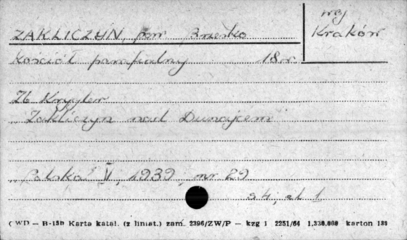 ZAKLICZYN, pow Brzesko
woj Kraków
Kościół parafialny 18 w.
Zb Kryptor
"Zakliczyn nad Dunajcem"
"Polska" V, 1939, nr 29
s 4, il 1
(WD — B-13b Karta katal. (z liniat.) zam. 2396/ZW/P — kzg 1 2251/64 1,330,000 karton 120